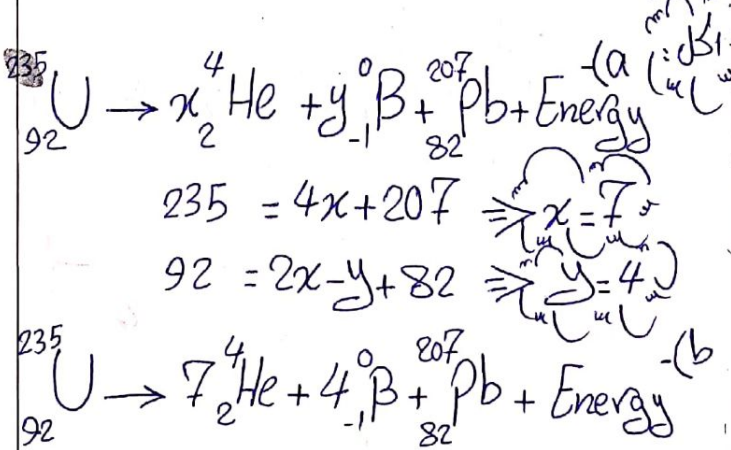 ²³⁵₉₂U → x ⁴₂He + y ⁰₋₁β + ²⁰⁷₈₂Pb + Energy -(a
235 = 4x + 207 ⇒ x = 7
92 = 2x - y + 82 ⇒ y = 4
²³⁵₉₂U → 7 ⁴₂He + 4 ⁰₋₁β + ²⁰⁷₈₂Pb + Energy -(b